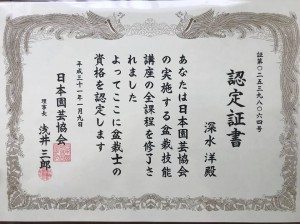 証第〇二五三九八〇六四号
認定証書
深水 洋殿
あなたは日本園芸協会
の実施する盆栽技能
講座の全課程を修了さ
れました
よってここに盆栽士の
資格を認定します
平成三十一年一月九日
日本園芸協会
理事長 浅井三郎